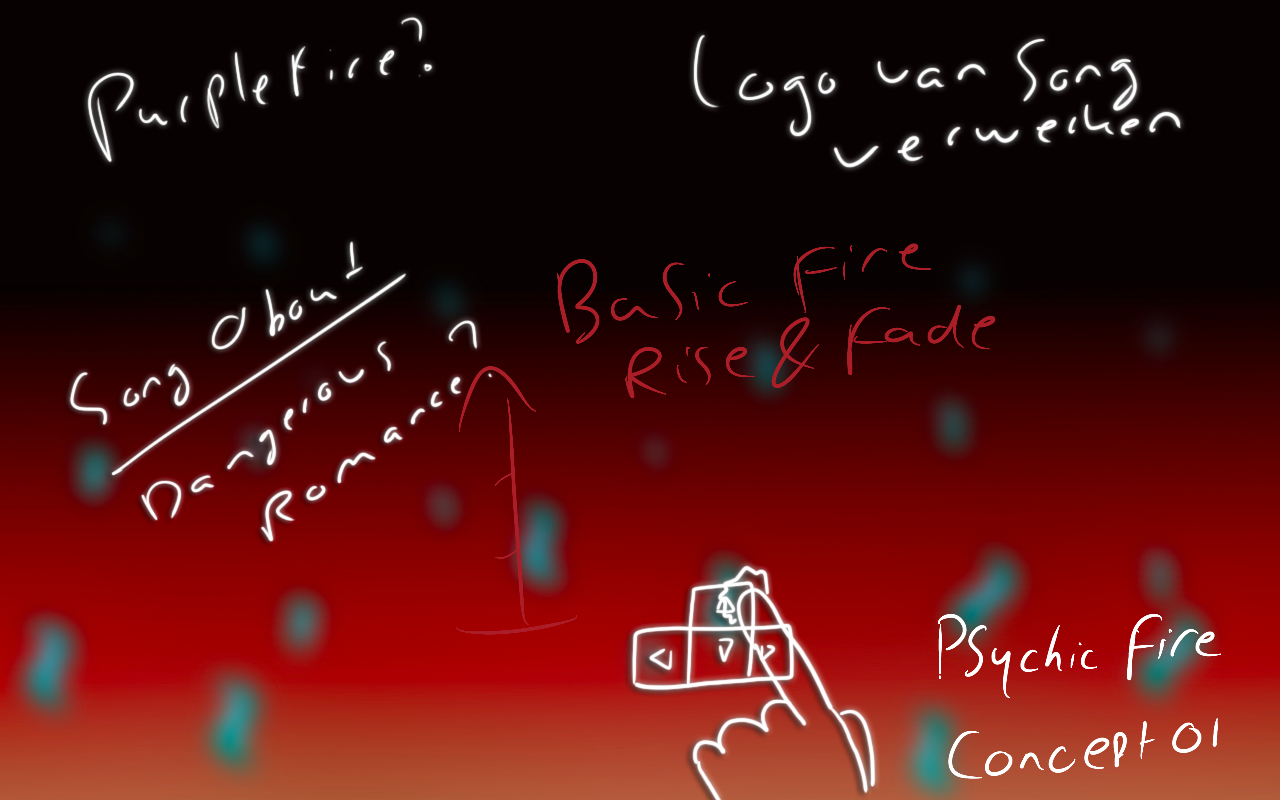 Purple Fire?
Logo van Song
verwerken
Song About
Dangerous
Romance?
Basic Fire
Rise & Fade
Psychic Fire
Concept 01